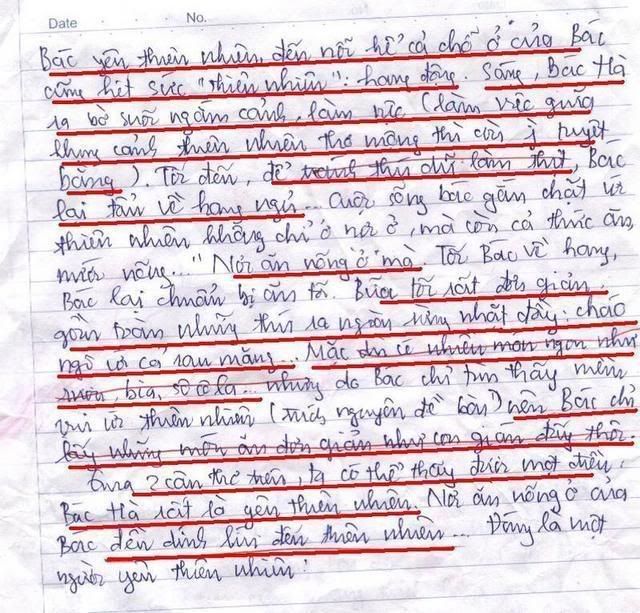 Date No.
Bác yên thiên nhiên, đến nỗi hể cả chỗ ở của Bác
cũng hết sức "thiên nhiên": hang động. Sáng, Bác Hồ
ra bờ suối ngắm cảnh, làm việc (làm việc giữa
khung cảnh thiên nhiên thơ mộng thì còn j tuyệt
bằng). Tối đến, để tránh thú dữ làm thịt, Bác
lại tản về hang ngủ... Cuộc sống bác gắn chặt vs
thiên nhiên không chỉ ở nơi ở, mà còn cả thức ăn,
nước uống... "Nơi ăn nống ở" mà. Tối Bác về hang,
Bác lại chuẩn bị ăn tối. Bữa tối rất đơn giản,
gồm toàn những thứ ra ngoài rừng nhặt đầy: cháo
ngô vs cả rau măng... Mặc dù có nhiều món ngon như
rượu, bia, sô cô la... nhưng do Bác chỉ tìm thấy niềm
vui vs thiên nhiên (trích nguyên đề bài) nên Bác chỉ
lấy những món ăn đơn giản như con gián đấy thôi.
Qua 2 câu thơ trên, ta có thể thấy được một điều,
Bác Hồ rất là yên thiên nhiên. Nơi ăn nống ở của
Bác đều dính líu đến thiên nhiên... Đúng là một
người yên thiên nhiên!